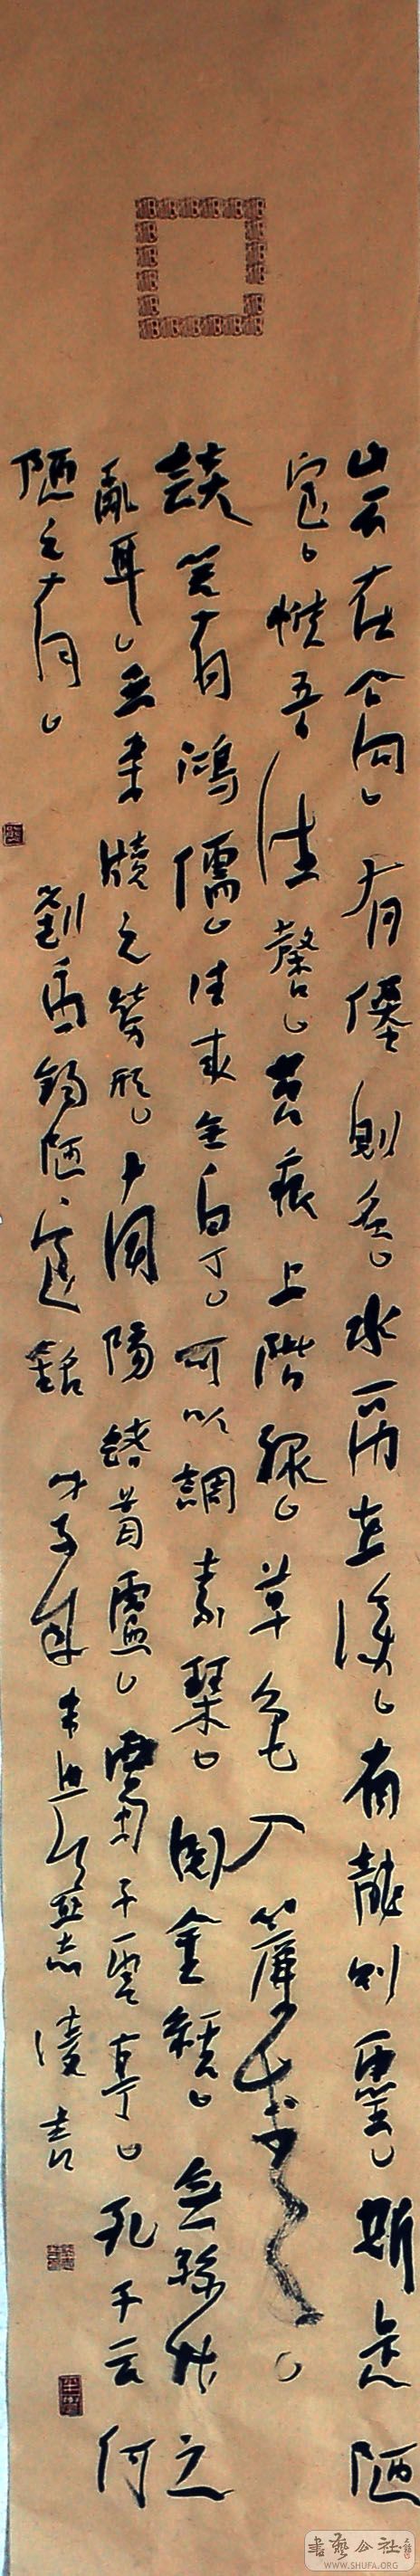 山不在高有僊則名水不在深有龍則靈斯是陋
室惟吾德馨苔痕上階緑草色入簾青
談笑有鴻儒往來無白丁可以調素琴閲金經無絲竹之
亂耳無案牘之勞形南陽諸葛廬西蜀子雲亭孔子云何
陋之有
劉禹錫陋室銘
書藝公社
WWW.SHUFA.ORG